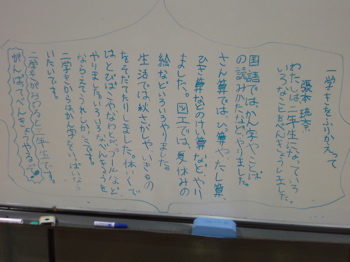 一学きをふりかえって
張本
わたしは二年生になって、いろい
ろなことをべんきょうしました。
国語では、かん字やことば
の読みかたなどをやりました。
さん算では、かけ算や、たし算
ひき算などのけい算などをやり
ました。図工では、夏休みの
絵などいろいろやりました。
生活では、秋さがしや、いきもの
をそだてたりしました。体いくで
はとびばこやなわとび、ボールなど
やりました。いろいろなべんきょうを
ならえてうれしかったです。
二学きからもかん字をいっぱいならい
たいです。
二学きがおわると三年生です。
がんばってべんきょうをやるぞ。